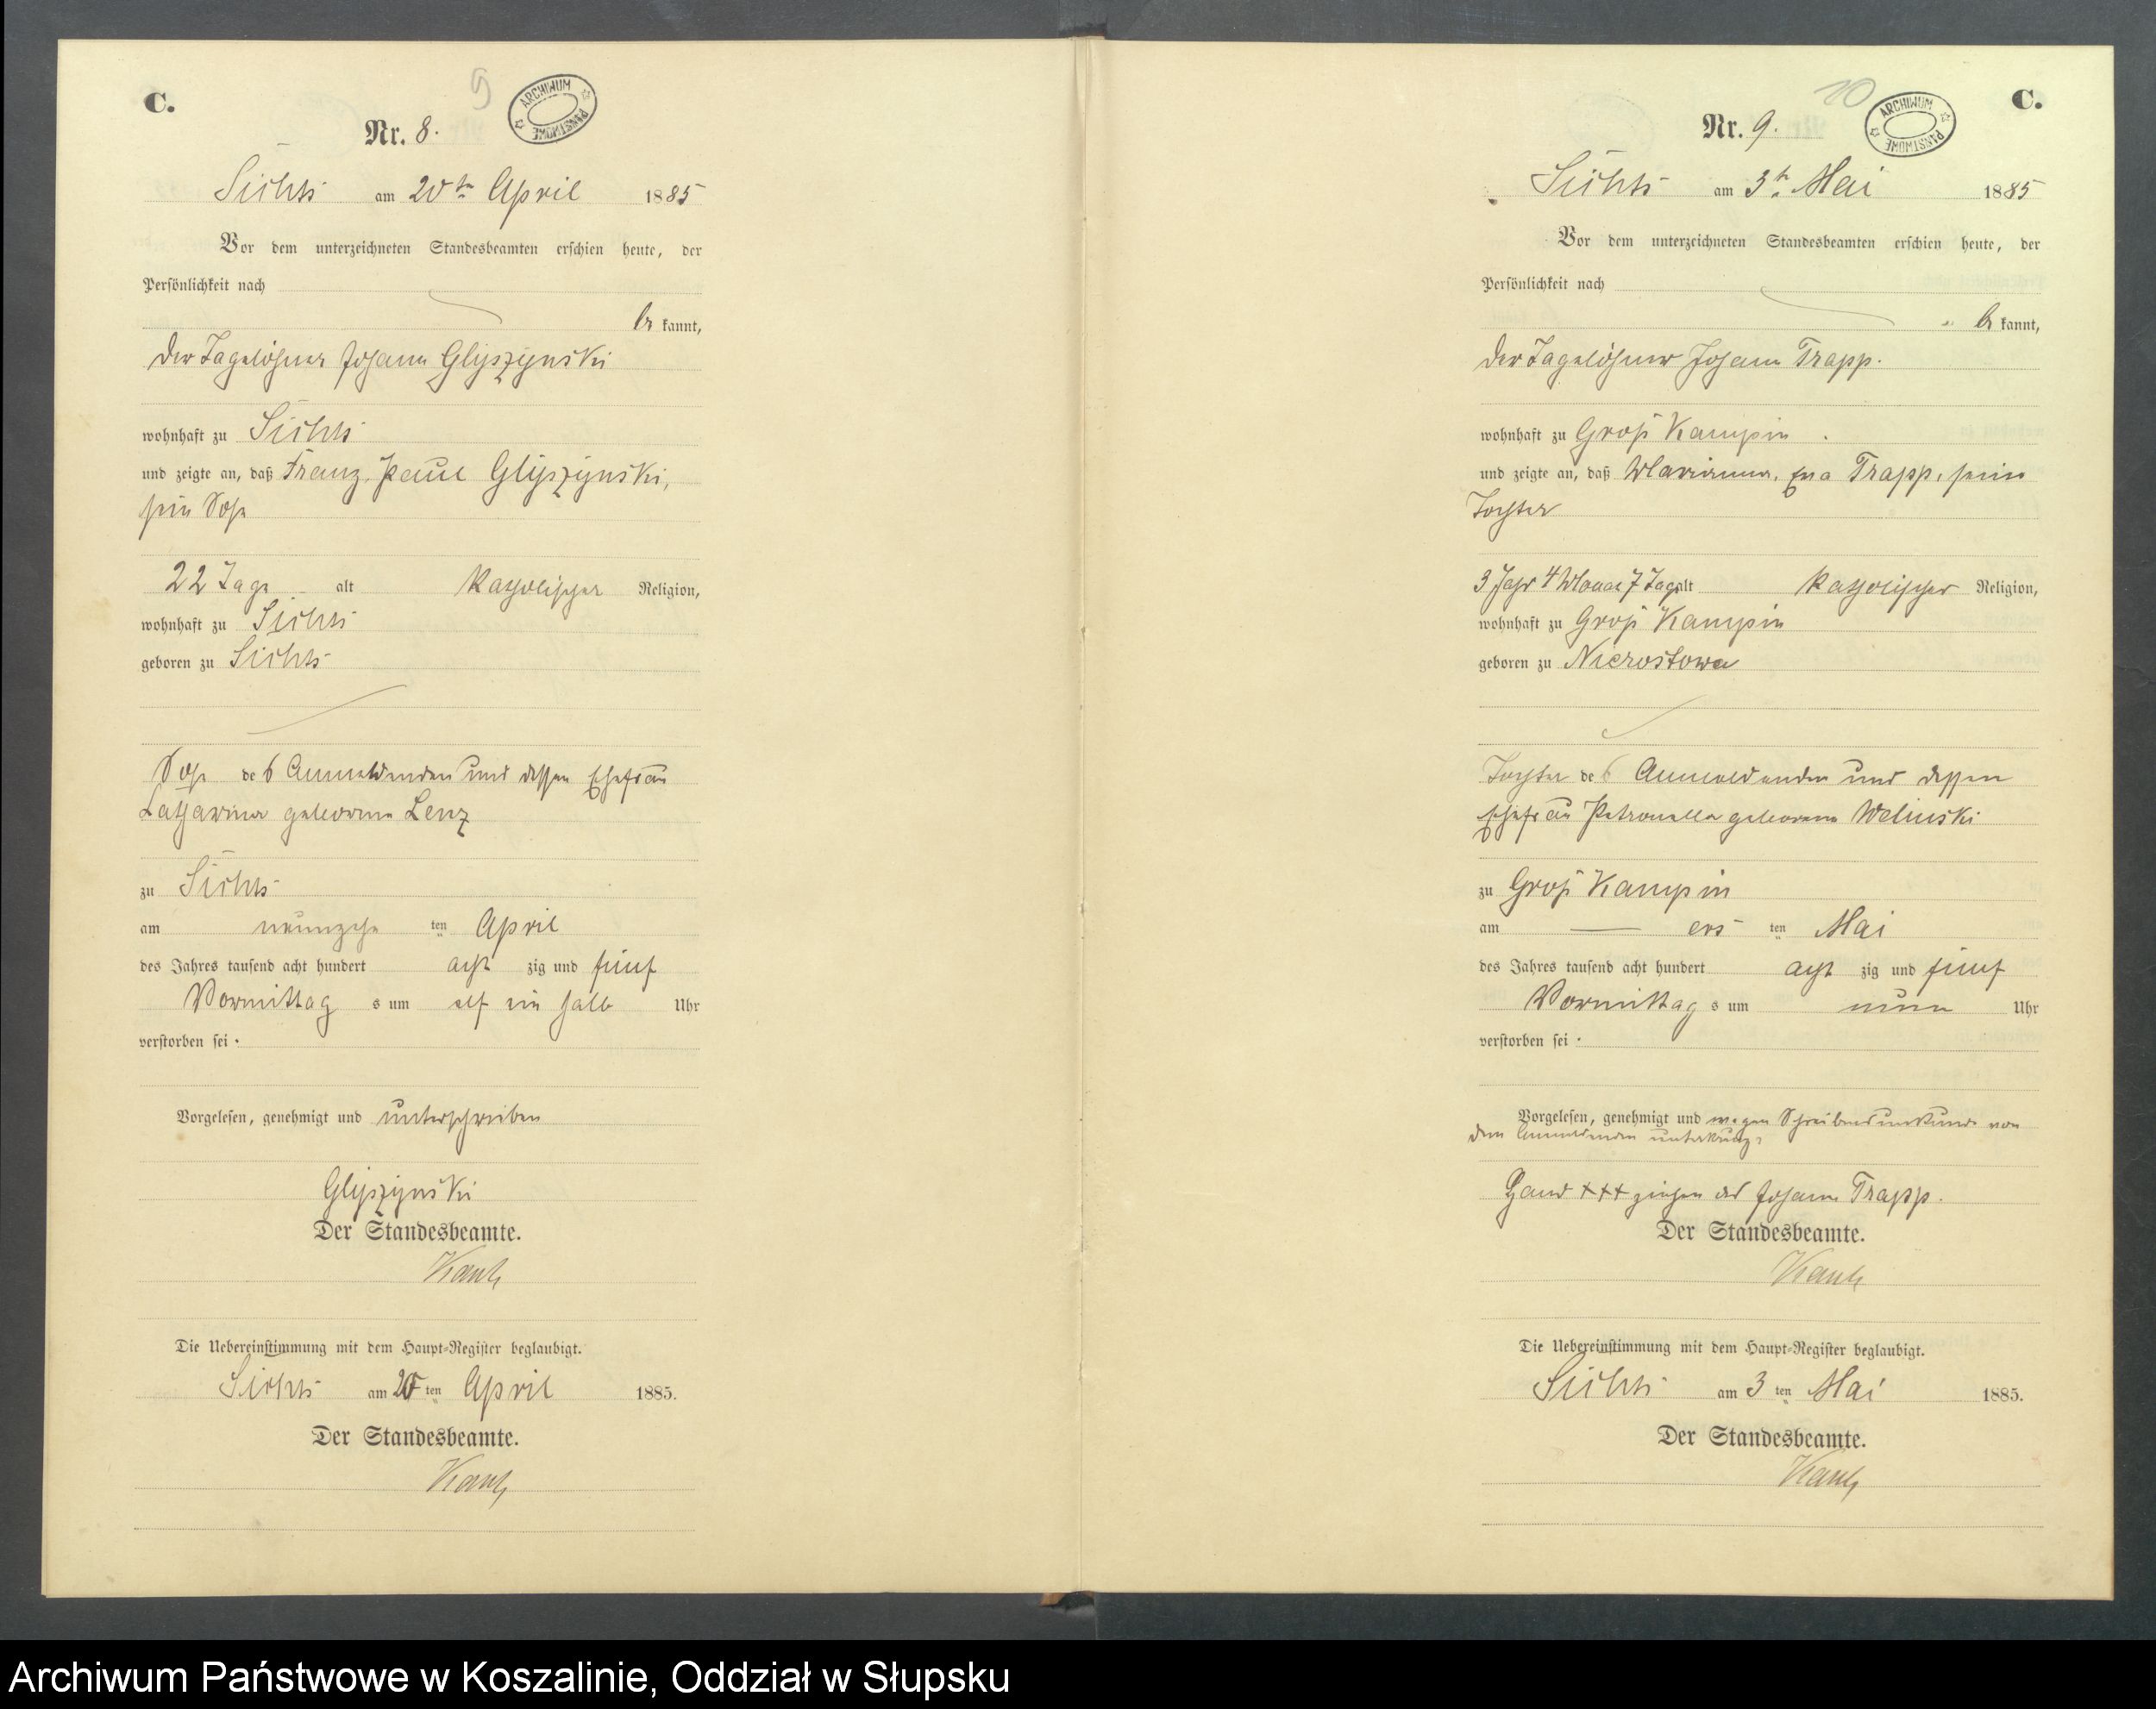 C.
9
ARCHIWUM PAŃSTWOWE
Nr. 8.
am 20ten April 1885
Vor dem unterzeichneten Standesbeamten erschien heute, der
Persönlichkeit nach
be kannt,
der Tagelöhner Johann Glyszynski
wohnhaft zu
und zeigte an, daß Franz Paul Glyszynski,
sein Sohn
22 Tage alt katholischer Religion,
wohnhaft zu
geboren zu
Sohn des Anmeldenden und dessen Ehefrau
Catharina geborene Lenz
zu
am neunzehn ten April
des Jahres tausend acht hundert acht zig und fünf
Vormittag s um elf ein halb Uhr
verstorben sei.
Vorgelesen, genehmigt und unterschrieben
Glyszynski
Der Standesbeamte.
Die Uebereinstimmung mit dem Haupt-Register beglaubigt.
am 20 ten April 1885.
Der Standesbeamte.
10
C.
ARCHIWUM PAŃSTWOWE
Nr. 9.
am 3ten Mai 1885
Vor dem unterzeichneten Standesbeamten erschien heute, der
Persönlichkeit nach
be kannt,
der Tagelöhner Johann Trapp.
wohnhaft zu Groß Kampin.
und zeigte an, daß Marianna, Eva Trapp, seine
Tochter
3 Jahr 4 Monat 7 Tage alt katholischer Religion,
wohnhaft zu Groß Kampin
geboren zu Nierostowa
Tochter des Anmeldenden und dessen
Ehefrau Petronella geborene Welinski
zu Groß Kampin
am ers ten Mai
des Jahres tausend acht hundert acht zig und fünf
Vormittag s um neun Uhr
verstorben sei.
Vorgelesen, genehmigt und wegen Schreibensunkunde von
dem Anmeldenden unterkreuzt
Hand +++ zeichen des Johann Trapp.
Der Standesbeamte.
Die Uebereinstimmung mit dem Haupt-Register beglaubigt.
am 3 ten Mai 1885.
Der Standesbeamte.
Archiwum Państwowe w Koszalinie, Oddział w Słupsku